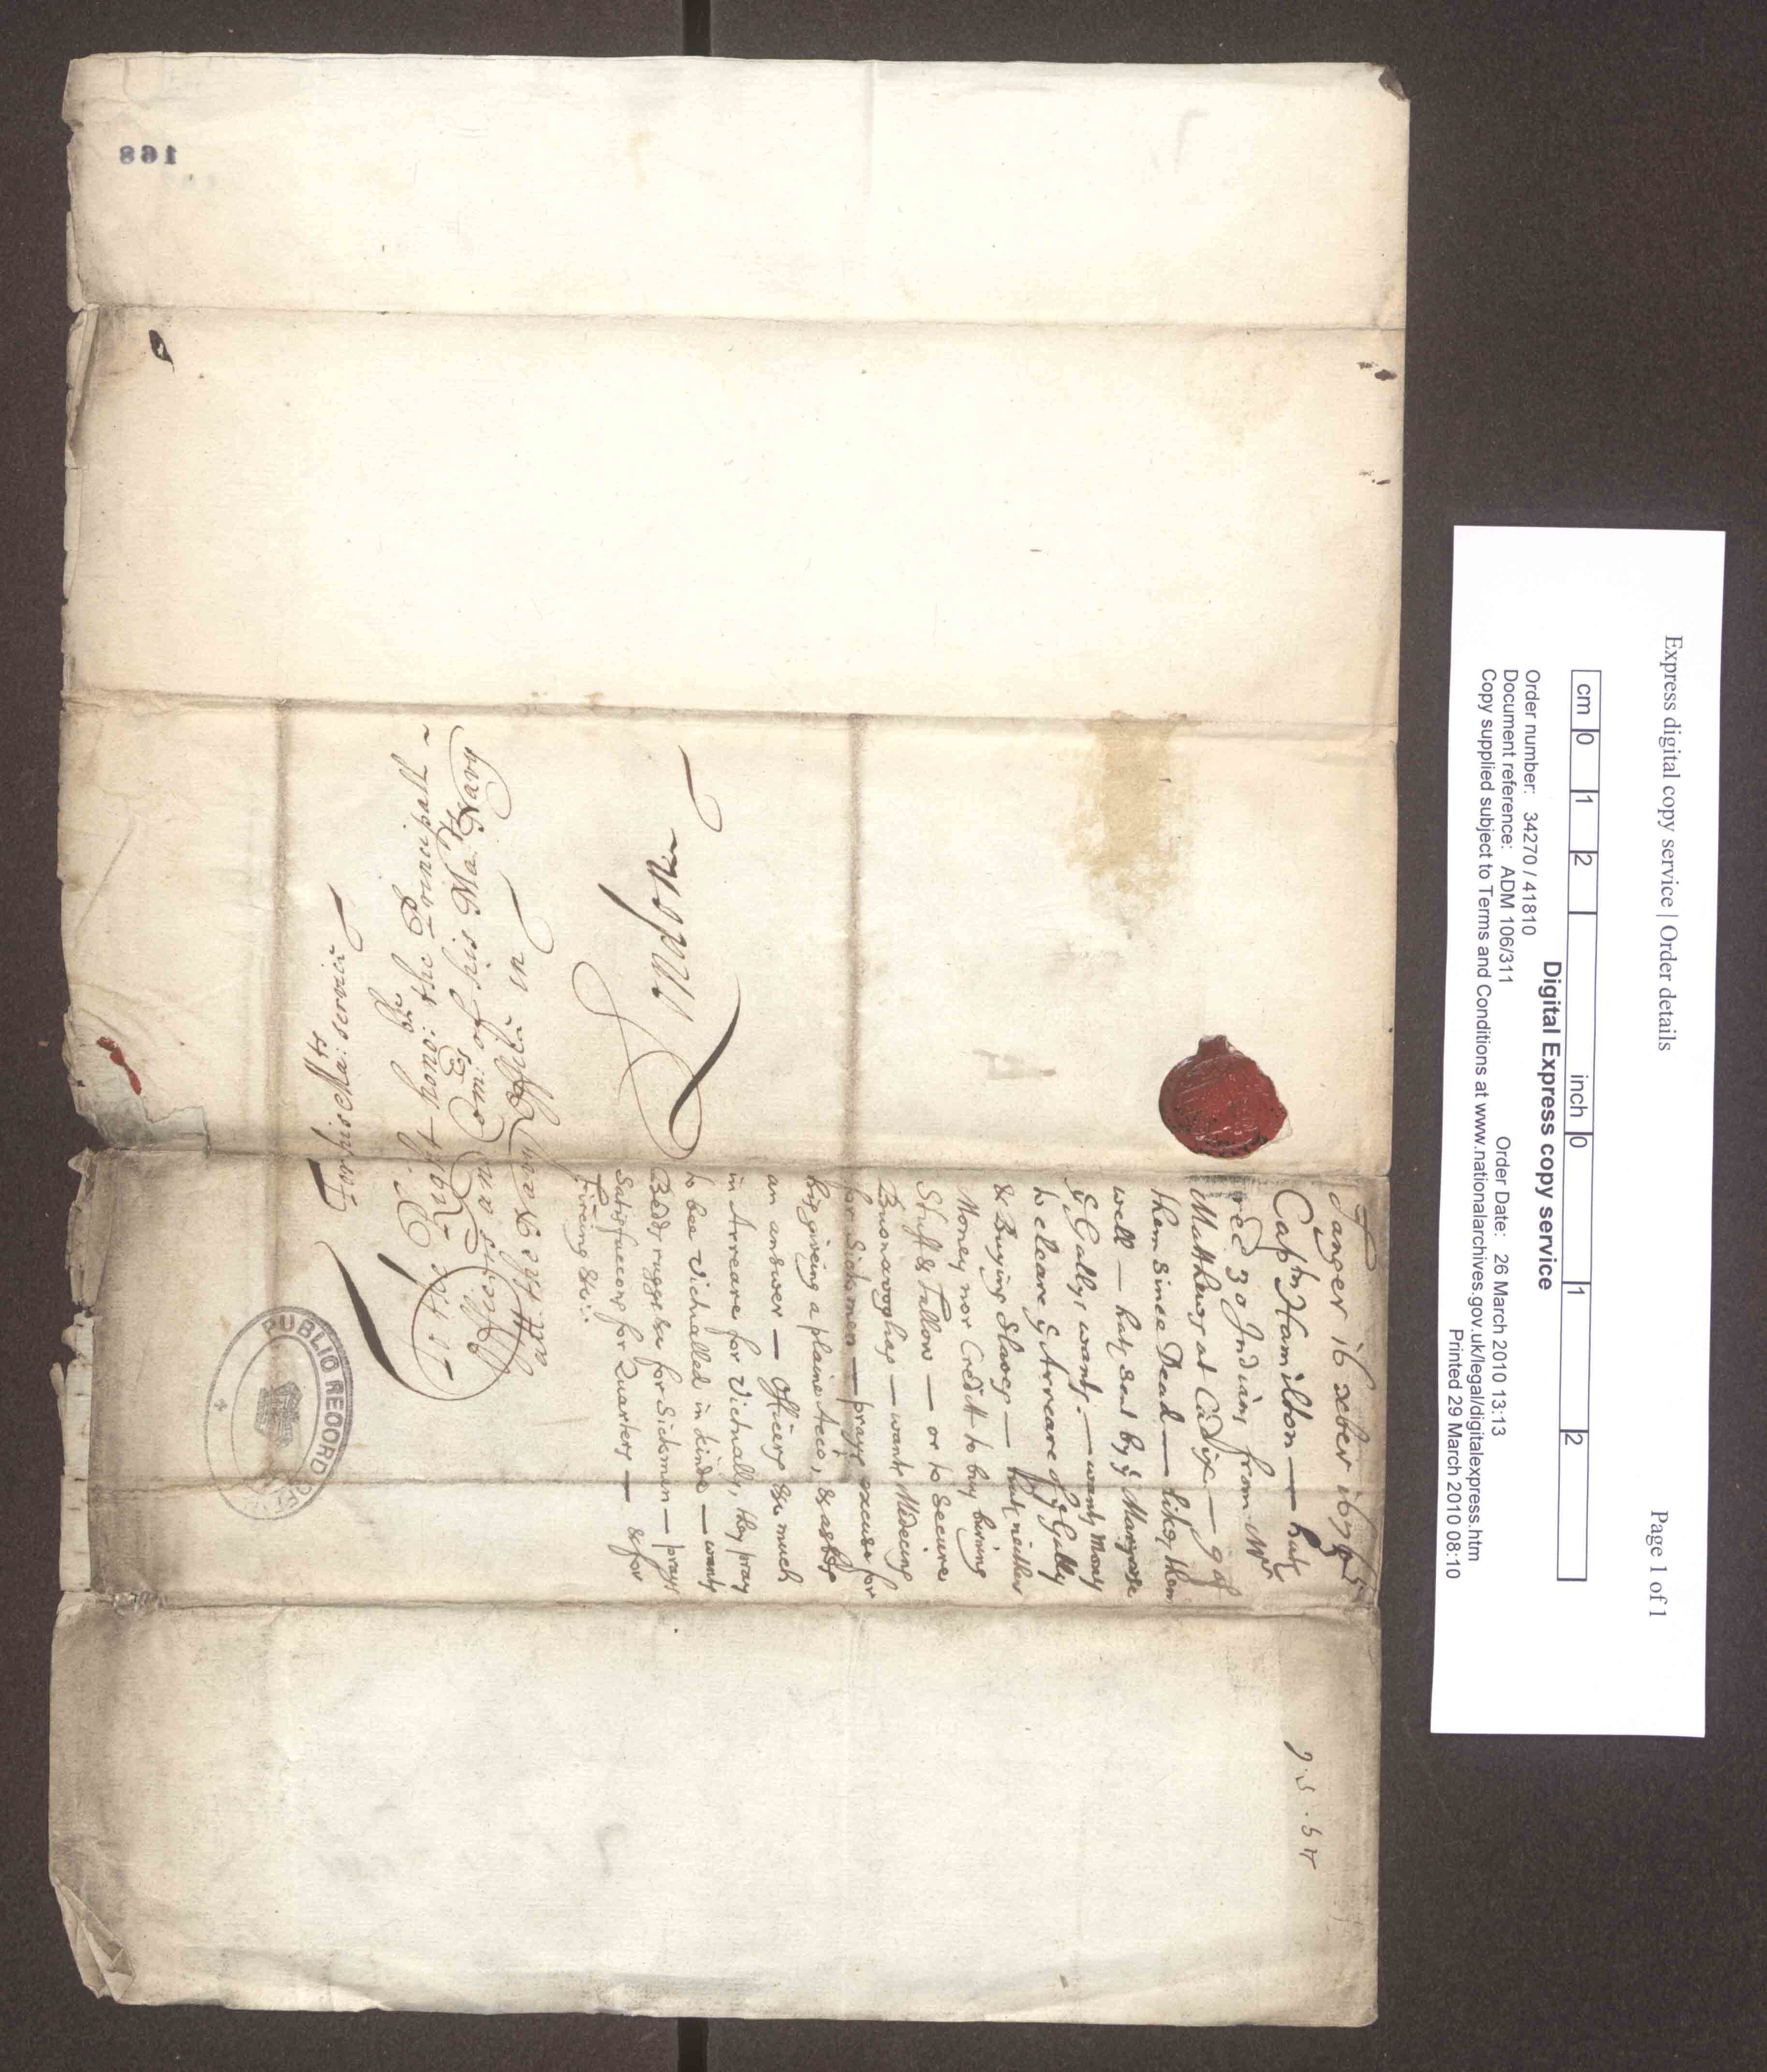 Tanger 16 xber 1676
Capt.n Hamilton — hath
rec.d 30 Indians from Mr.
Matthews at Cadix — 9 of
them since Dead — likes them
well — hath sent by ye Margarose
ye Gallys wants. — wants Mony
to cleare ye Arreare of ye Gally
& Buying Slaves — hath neither
Money nor Creditt to buy burning
Stuff & Tallow — or to secure
Buonavoglias — wants Medecins
for Sickmen — prays excuse for
his giveing a plaine Acco, & asking
an answer — Officers &c much
in Arreare for Victualls, they pray
to bee Victualled in kinde — wants
Bedds ruggs &c for Sickmen — prays
Satisfaccons for Quarters — & for
Fireing &c:
For his Ma:ts service
To the Right hono:ble the Principall
Officers and Com:rs of his Ma:ts Navy
att the Navy Office in
London
168
PUBLIC RECORD OFFICE
Express digital copy service | Order details
Page 1 of 1
cm 0 1 2
inch 0 1 2
Digital Express copy service
Order number: 34270 / 41810
Order Date: 26 March 2010 13:13
Document reference: ADM 106/311
Copy supplied subject to Terms and Conditions at www.nationalarchives.gov.uk/legal/digitalexpress.htm
Printed 29 March 2010 08:10